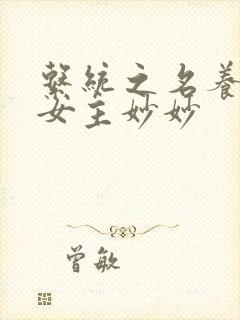 繫統之名養
女主妙妙
曾敏